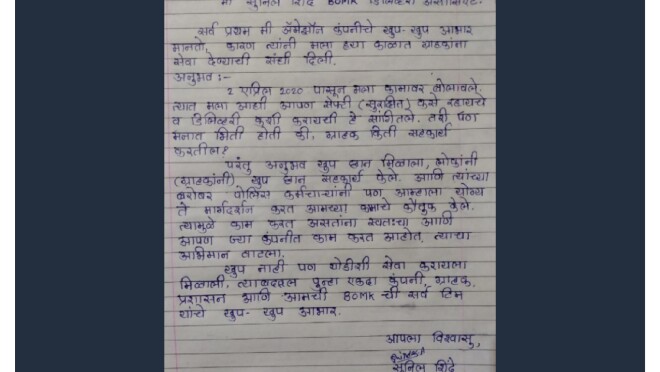 मी सुनिल शिंदे BOMK डिलिव्हरी असोसिएट.
सर्व प्रथम मी ॲमेझॉन कंपनीचे खुप-खुप आभार
मानतो, कारण त्यांनी मला ह्या काळात ग्राहकांना
सेवा देण्याची संधी दिली.
अनुभव :-
2 एप्रिल 2020 पासून मला कामावर बोलावले.
त्यात मला आही आपण सेफ्टी (सुरक्षित) कसे रहायचे
व डिलिव्हरी कशी करायची हे सांगितले. तरी पण
मनात भिती होती की, ग्राहक किती सहकार्य
करतील?
परंतु अनुभव खुप छान मिळाला, लोकांनी
(ग्राहकांनी) खुप छान सहकार्य केले. आणि त्यांच्या
बरोबर पोलिस कर्मचाऱ्यांनी पण आम्हाला योग्य
ते मार्गदर्शन करत आमच्या कामाचे कौतुक केले.
त्यामुळे काम करत असतांना स्वतःचा आणि
आपण ज्या कंपनीत काम करत आहोत, त्याचा
अभिमान वाटला.
खुप नाही पण थोडीशी सेवा करायला
मिळाली, त्याबद्दल पुन्हा एकदा कंपनी, ग्राहक,
प्रशासन आणि आमची BOMK ची सर्व टिम
यांचे खुप-खुप आभार.
आपला विश्वासु,
सुनिल शिंदे